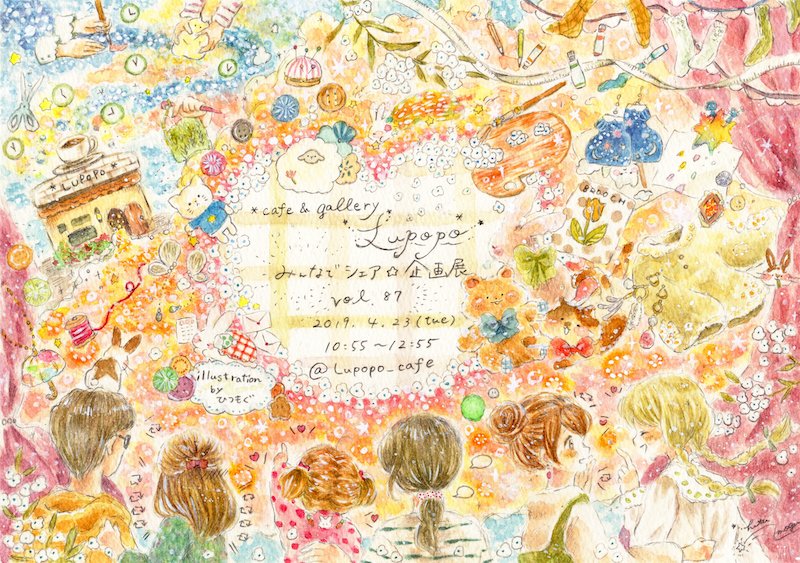 LUPOPO
* cafe & gallery *
Lupopo
みんなでシェア☆企画展
vol. 87
2019. 4. 23 (tue)
10:55〜12:55
@ Lupopo_cafe
BROOCH
illustration
by
ひつもぐ